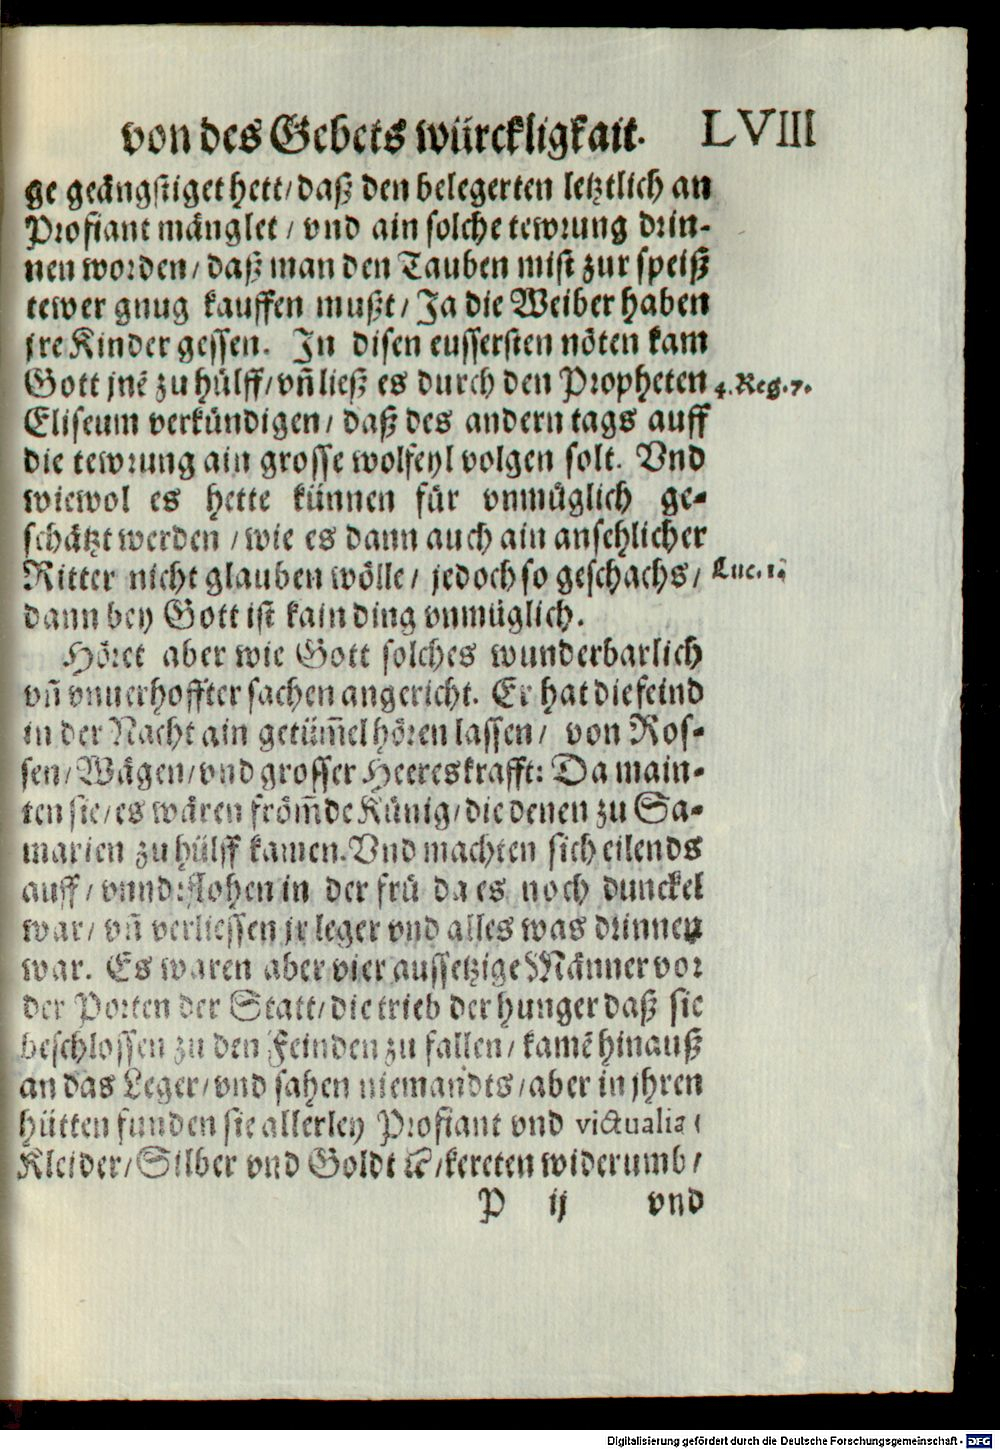 von des Gebets würckligkait. LVIII
ge geängstiget hett/ daß den belegerten letztlich an
Profiant mänglet / vnd ain solche tewrung drin-
nen worden/ daß man den Tauben mist zur speiß
tewer gnug kauffen mußt/ Ja die Weiber haben
jre Kinder gessen. In disen eussersten nöten kam
Gott jnē zu hülff/ vñ ließ es durch den Propheten 4. Reg. 7.
Eliseum verkündigen/ daß des andern tags auff
die tewrung ain grosse wolfeyl volgen solt. Vnd
wiewol es hette künnen für vnmüglich ge-
schätzt werden / wie es dann auch ain ansehlicher
Ritter nicht glauben wölle/ jedoch so geschachs/ Luc. 1.
dann bey Gott ist kain ding vnmüglich.
Höret aber wie Gott solches wunderbarlich
vñ vnuerhoffter sachen angericht. Er hat die feind
in der Nacht ain getüm̃el hören lassen/ von Ros-
sen/ Wägen/ vnd grosser Heereskrafft: Da main-
ten sie/ es wären fröm̃de Künig/ die denen zu Sa-
marien zu hülff kamen. Vnd machten sich eilends
auff/ vnnd flohen in der frü da es noch dunckel
war/ vñ verliessen jr leger vnd alles was drinnen
war. Es waren aber vier aussetzige Männer vor
der Porten der Statt/ die trieb der hunger daß sie
beschlossen zu den Feinden zu fallen/ kamē hinauß
an das Leger/ vnd sahen niemandts/ aber in jhren
hütten funden sie allerley Profiant vnd victualia/
Kleider/ Silber vnd Goldt ꝛc/ kereten widerumb/
P ij vnd
Digitalisierung gefördert durch die Deutsche Forschungsgemeinschaft - DFG